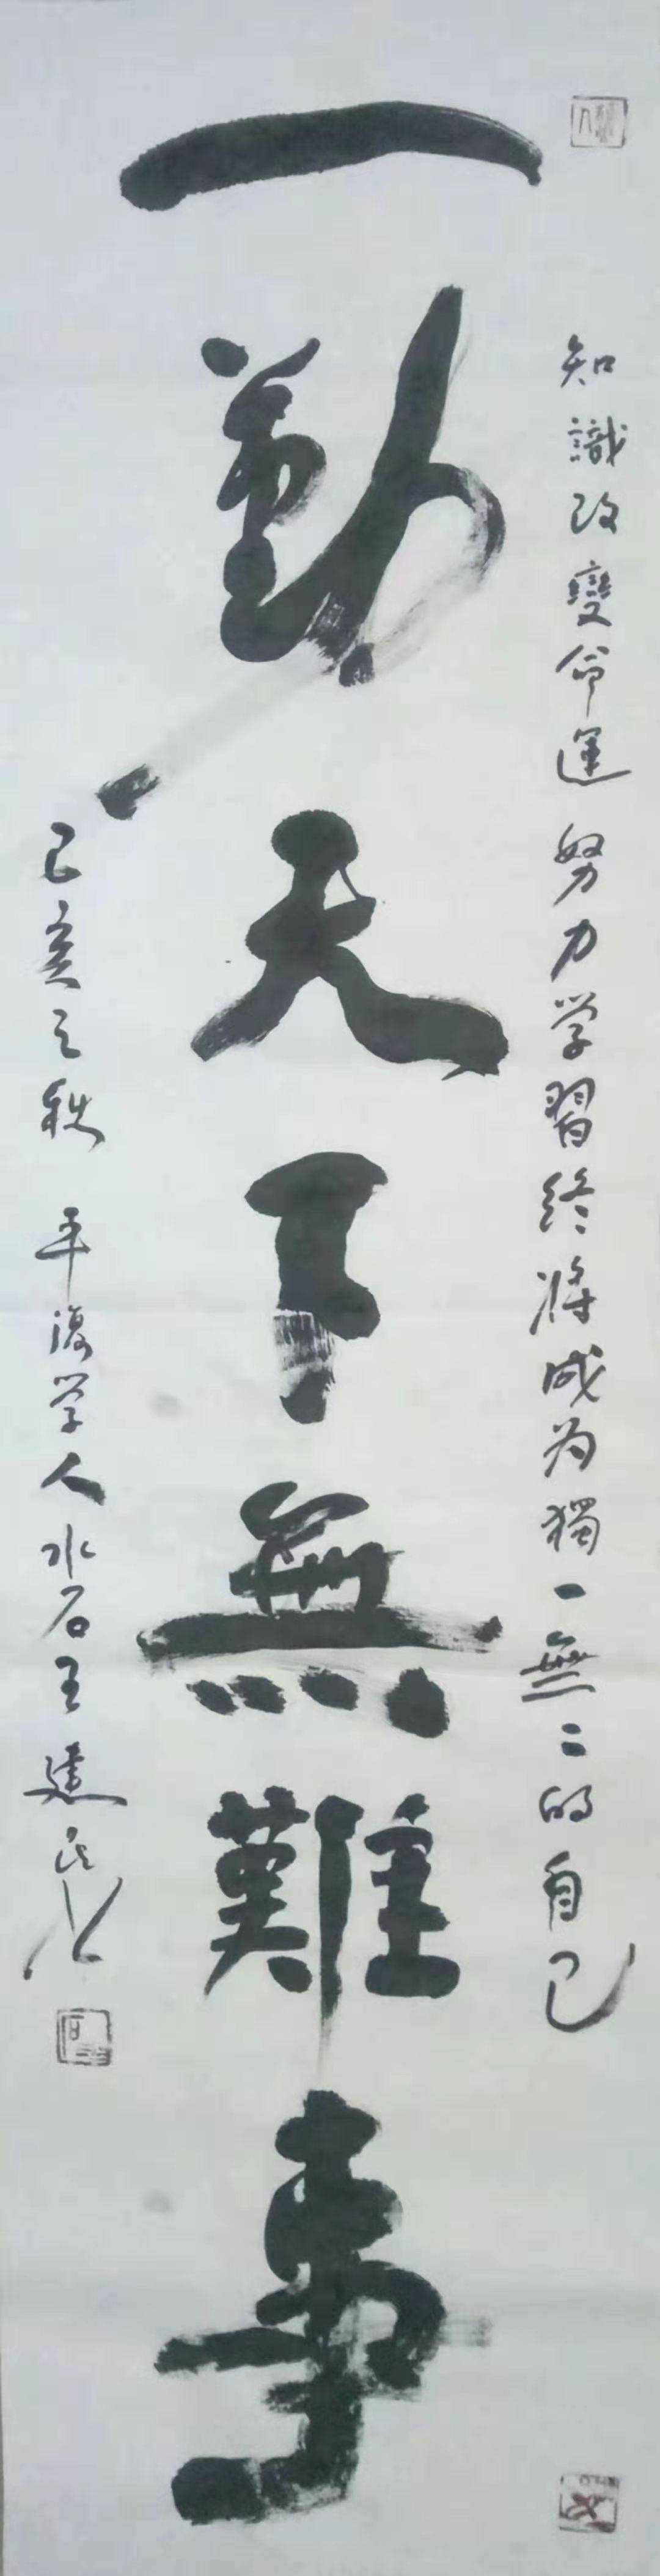 知識改變命運努力学習終將成为獨一無二的自己
一勤天下無難事
己亥之秋 平復学人水石王建